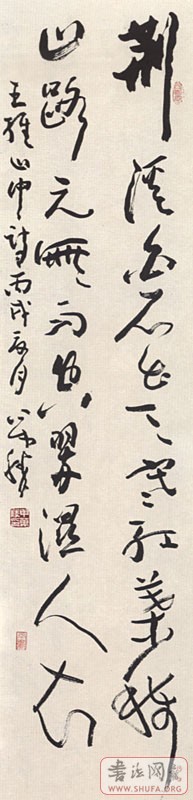 荊溪白石出天寒紅葉稀
山路元無雨空翠濕人衣
王維山中詩丙戌夏月
書法网
WWW.SHUFA.ORG